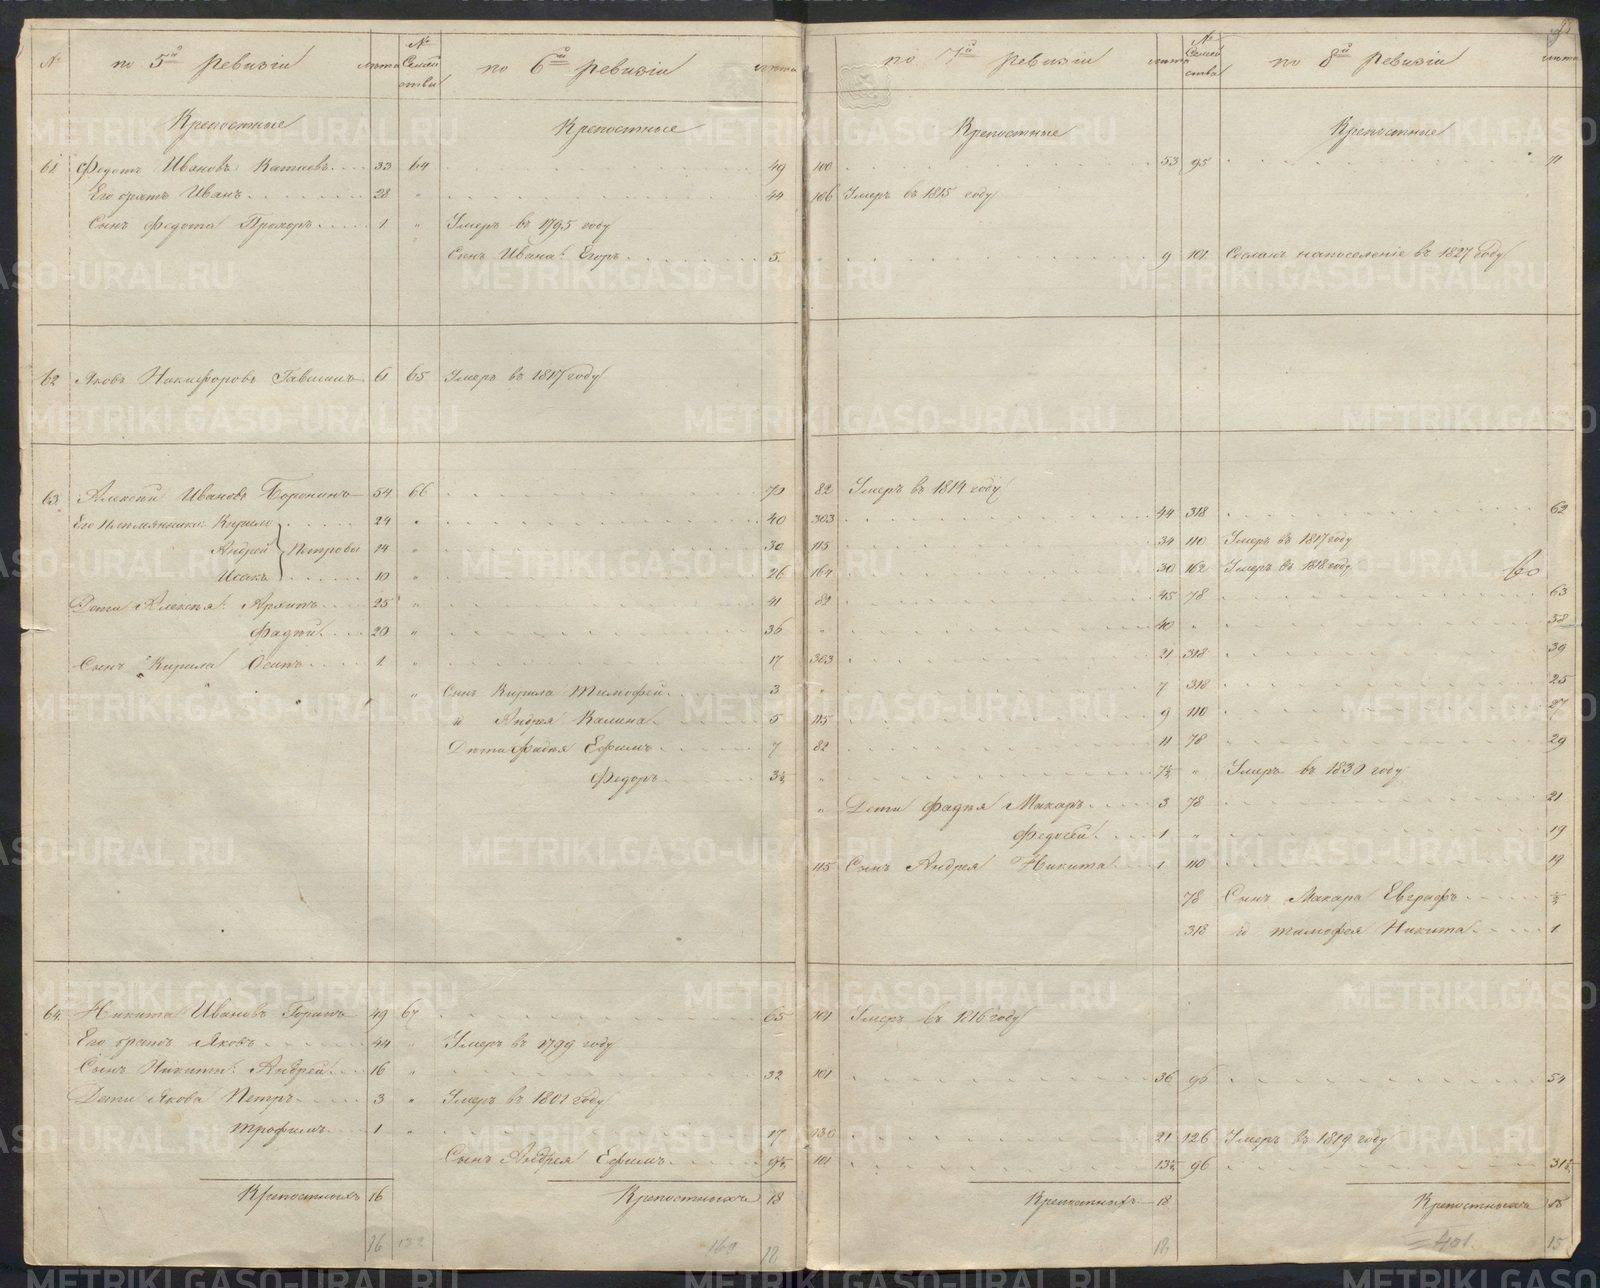 № по 5й ревизіи лѣта № Семей ства по 6й ревизіи лѣта по 7й ревизіи лѣта № Семей ства по 8й ревизіи лѣта
Крепостные Крепостные Крепостные Крепостные
61 Федотъ Ивановъ 33 64 49 100 53 95 71
Его братъ Иванъ 28 " 44 106 Умеръ въ 1815 году
Сынъ Федота Прохоръ 1 " Умеръ въ 1795 году
Сынъ Ивана: Егоръ 5 9 101 Сосланъ напоселеніе въ 1827 году
62 Яковъ Никифоровъ 61 65 Умеръ въ 1817 году
63 Алексѣй Ивановъ Воронинъ 54 66 70 82 Умеръ въ 1814 году
Его племянники: Кирило 24 " 40 303 44 318 62
Андрей Петровы 14 " 30 115 34 110 Умеръ въ 1817 году
Исакъ 10 " 26 164 30 162 Умеръ въ 1818 году
Дети Алексѣя: Архипъ 25 " 41 82 45 78 63
Фадѣй 20 " 36 " 40 " 58
Сынъ Кирила Осипъ 1 " 17 303 21 318 39
" Сынъ Кирила Тимофей 3 " 7 318 25
и Андрея Калина 5 115 9 110 27
Дѣти Фадѣя Ефимъ 7 82 11 78 29
Федоръ 3½ " 7½ " Умеръ въ 1830 году
" Дети Фадѣя Макаръ 3 78 21
Федосей 1 " 19
115 Сынъ Андрея Никита 1 110 19
78 Сынъ Макара Евграфъ ½
318 и Тимофея Никита 1
64 Никита Ивановъ 49 67 65 101 Умеръ въ 1816 году
Его братъ Яковъ 44 " Умеръ въ 1799 году
Сынъ Никиты: Андрей 16 " 32 101 36 96 54
Дети Якова Петръ 3 " Умеръ въ 1801 году
Трофимъ 1 " 17 130 21 126 Умеръ въ 1819 году
Сынъ Андрея Ефимъ 9½ 101 13½ 96 31½
Крепостныхъ 16 Крепостныхъ 18 Крепостныхъ 18 Крепостныхъ 15
16 132 169 18 18 401 15
METRIKI.GASO-URAL.RU